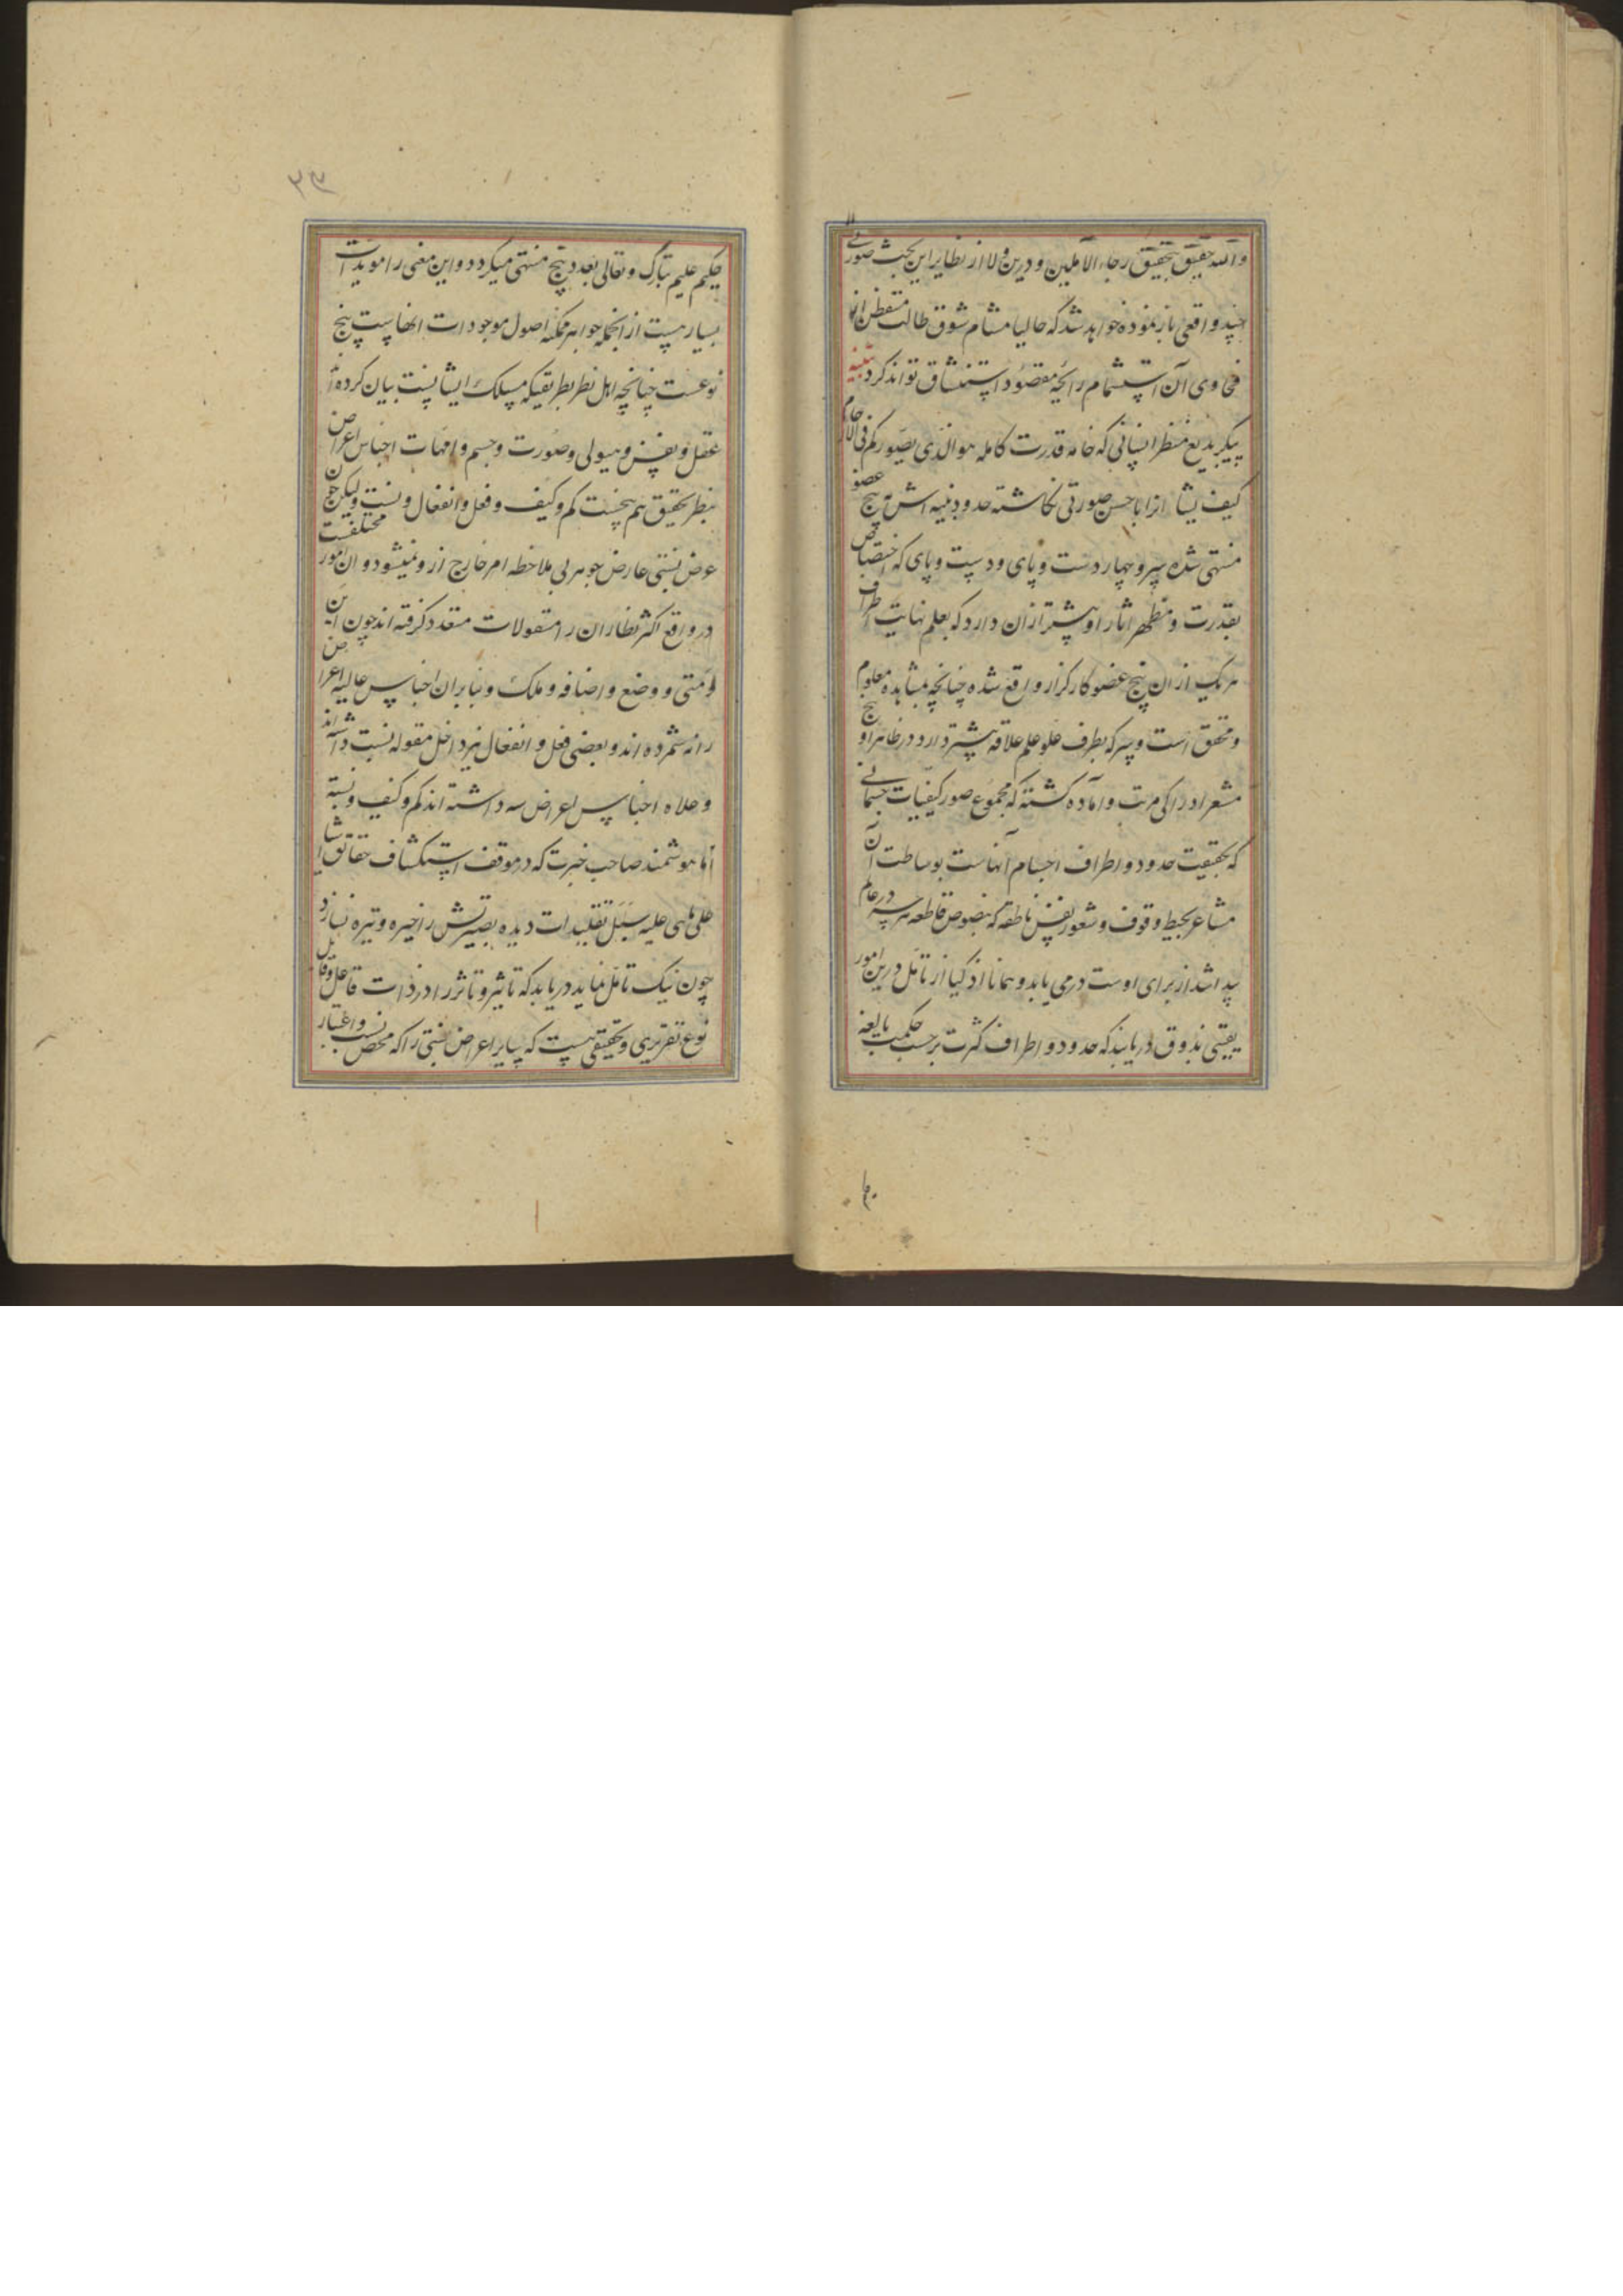 والله حقیق بتحقیق رجاء الآملین و درین ولا از نظایر این بحث صورتی
چند واقعی باز نموده خواهد شد که حالیا مشام شوق طالب متفطن از
فحاوی آن استشمام رایحه مقصود استنشاق تواند کرد تنبیه
پیکر بدیع منظر انسانی که خامه قدرت کامله هو الذی یصورکم فی الارحام
کیف یشا انرا باحسن صورتی نگاشته حدود بنیه اش به پنج عضو
منتهی شده سر و چهار دست و پای و دست و پای که اختصاص
بقدرت و مظهر اثار او بیشتر از ان دارد که بعلم نهایت اطراف
هر یک از ان پنج عضو کارگزار واقع شده چنانچه بمشاهده معلوم
و محقق است و سر که بطرف علو علم علاقه بیشتر دارد در ظاهر او پنج
مشعر ادراکی مرتب و آماده گشته که مجموع صور کیفیات جسمانی
که بحقیقت حدود و اطراف اجسام آنهاست بوساطت آن
مشاعر بحیط وقوف و شعور نفس ناطقه که بنصوص قاطعه هر چه در عالم
پیدا شد از برای اوست درمی یابد و همانا اذکیا از تامل درین امور
یقینی بذوق دریابند که حدود و اطراف کثرت بر حسب حکمت بالغه
۳۳
حکیم علیم تبارک و تعالی بعدد پنج منتهی میگردد و این معنی را مویدات
بسیارست از انجمله جواهر ممکنه اصول موجودات انهاست پنج
نوعست چنانچه اهل نظر بطریقیکه مسلک ایشانست بیان کرده اند
عقل و نفس و هیولی و صورت و جسم و امهات اجناس اعراض
بنظر تحقیق هم پنجست کم و کیف و فعل و انفعال و نسبت و لیکن چون
عرض نسبتی عارض جوهر بی ملاحظه امر خارج ازو نمیشود و ان امور مختلفست
در واقع اکثر نظار ان را مقولات متعدد گرفته اند چون این
و متی و وضع و اضافه و ملک و بنابران اجناس عالیه اعراض
را نه شمرده اند و بعضی فعل و انفعال نیز داخل مقوله نسبت داشته اند
و علاه اجناس اعراض سه داشته اند کم و کیف و نسبة
اما هوشمند صاحب خبرت که در موقف استکشاف حقائق اشیا
علی ماهی علیه سبل تقلیدات دیده بصیرتش را خیره و تیره نسازد
چون نیک تامل نماید دریابد که تاثیر و تاثر را در ذات فاعل و قابل
نوع تقرری و تحقیقی هست که سایر اعراض نسبتی را که محض نسب و اعتبار